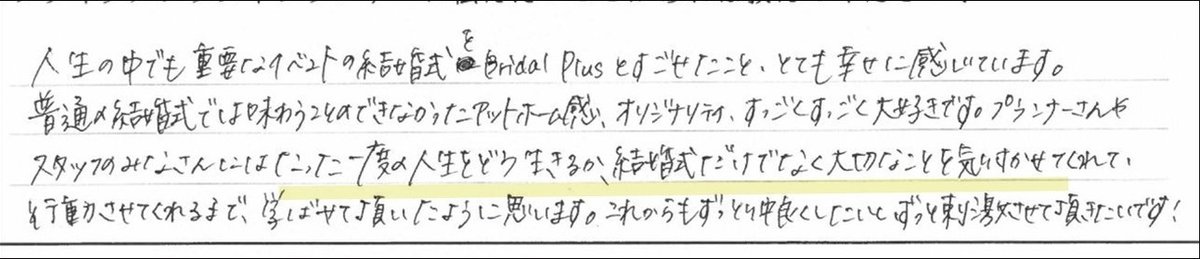 人生の中でも重要なイベントの結婚式をBridal Plusとすごせたこと、とても幸せに感じています。
普通の結婚式では味わうことのできなかったアットホーム感、オリジナリティ、すっごくすっごく大好きです。プランナーさんや
スタッフのみなさんにはたった一度の人生をどう生きるか、結婚式だけでなく大切なことを気ずかせてくれて、
行動させてくれるまで、学ばせて頂いたように思います。これからもずっと仲良くしたいしずっと刺激させて頂きたいです!